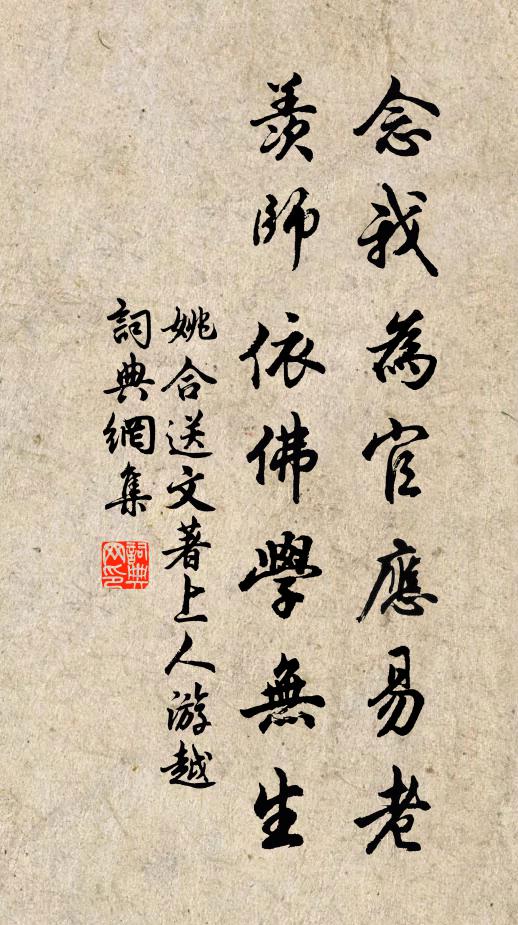 念我為官應易老
羨師依佛學無生
姚合送文著上人游越
詞典網集
詞典網印